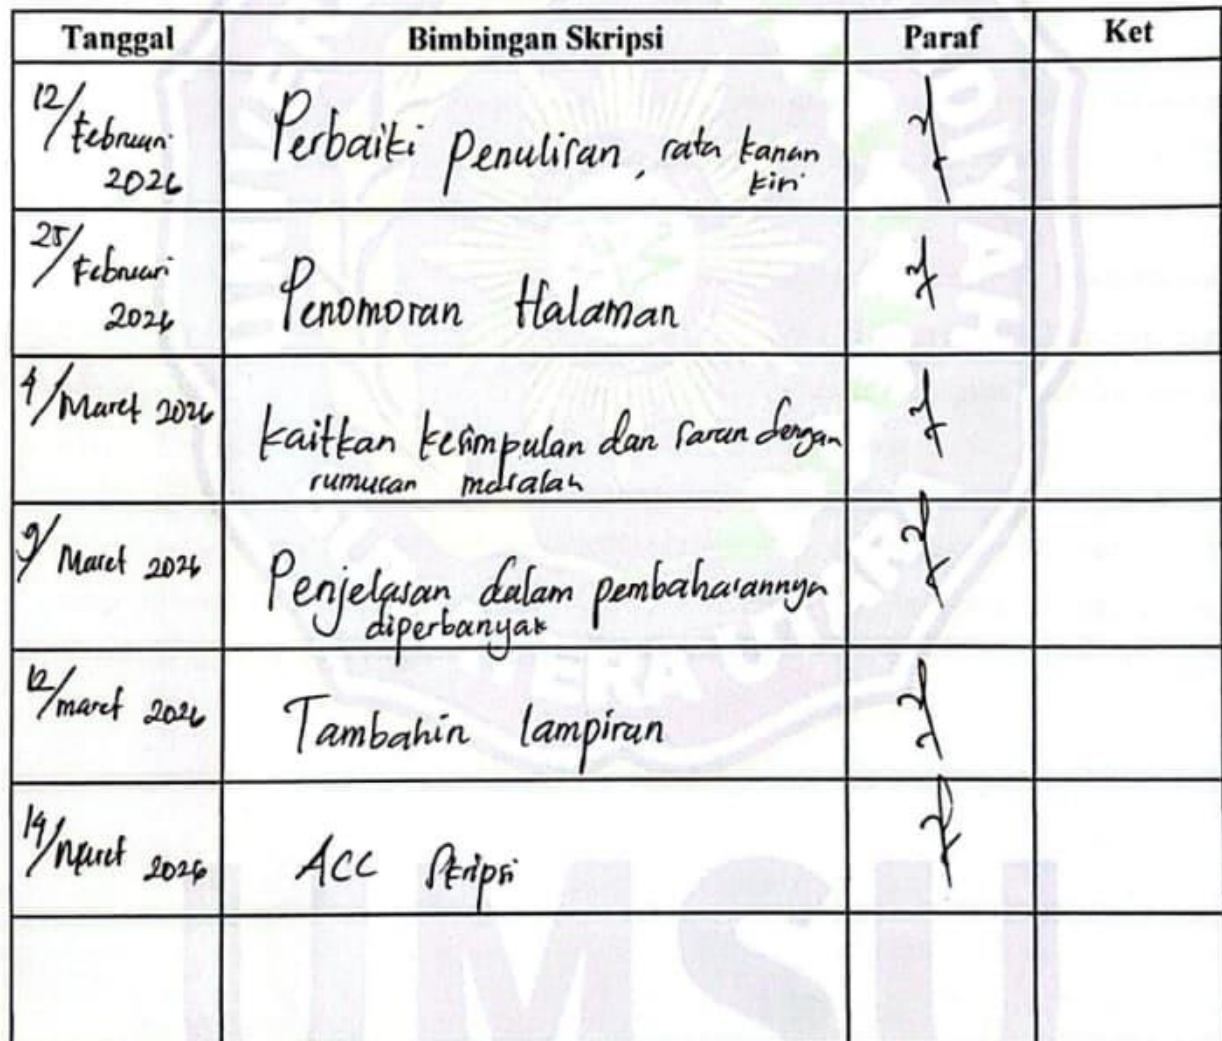 Tanggal Bimbingan Skripsi Paraf Ket
12/Februari 2026 Perbaiki penulisan, rata kanan kiri
25/Februari 2026 Penomoran Halaman
4/Maret 2026 Kaitkan kesimpulan dan saran dengan
rumusan masalah
9/Maret 2026 Penjelasan dalam pembahasannya
diperbanyak
12/maret 2026 Tambahin lampiran
14/Maret 2026 ACC Skripsi
UMSU